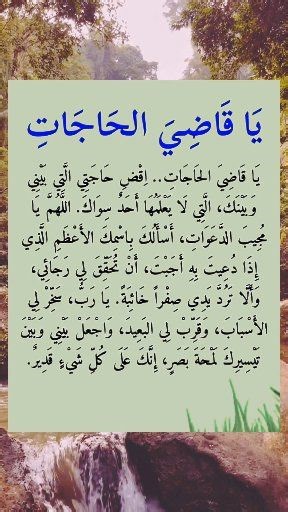 يَا قَاضِيَ الحَاجَاتِ
يَا قَاضِيَ الحَاجَاتِ.. اِقْضِ حَاجَتِي الَّتِي بَيْنِي
وَبَيْنَكَ، الَّتِي لَا يَعْلَمُهَا أَحَدٌ سِوَاكَ. اللَّهُمَّ يَا
مُجِيبَ الدَّعَوَاتِ، أَسْأَلُكَ بِاسْمِكَ الأَعْظَمِ الَّذِي
إِذَا دُعِيتَ بِهِ أَجَبْتَ، أَنْ تُحَقِّقَ لِي رَجَائِي،
وَأَلَّا تَرُدَّ يَدِي صِفْراً خَائِبَةً. يَا رَبُّ، سَخِّرْ لِي
الأَسْبَابَ، وَقَرِّبْ لِي البَعِيدَ، وَاجْعَلْ بَيْنِي وَبَيْنَ
تَيْسِيرِكَ لَمْحَةَ بَصَرٍ، إِنَّكَ عَلَى كُلِّ شَيْءٍ قَدِيرٌ.